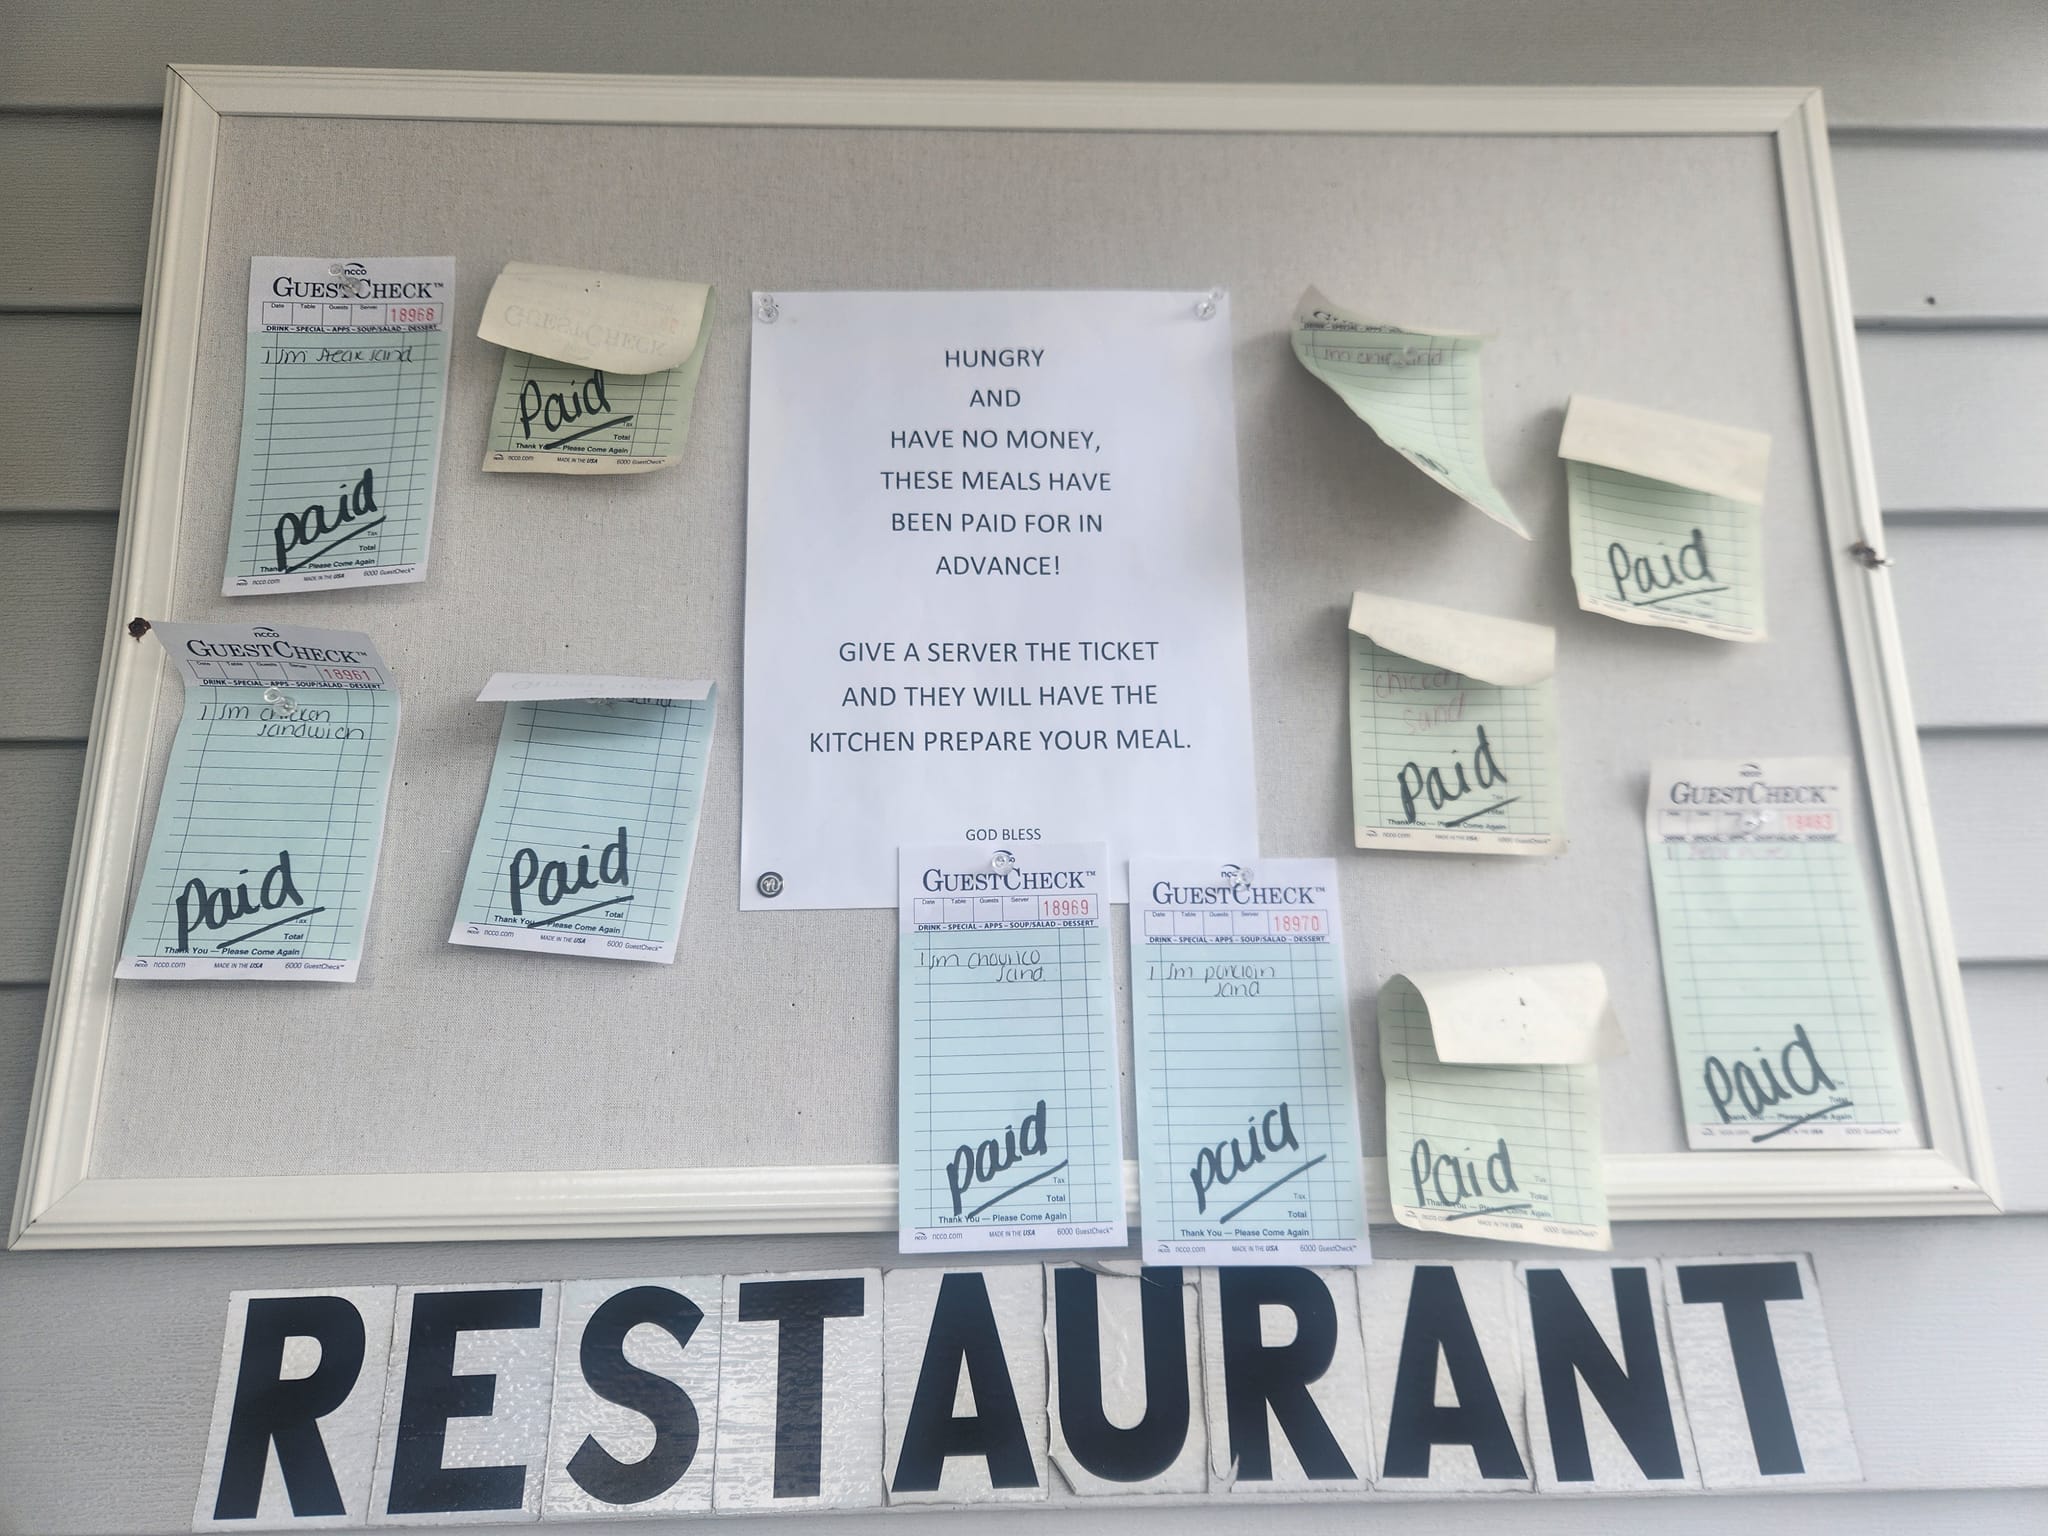 ncco
GUESTCHECK™
Date Table Guests Server 18968
DRINK – SPECIAL – APPS – SOUP/SALAD – DESSERT
1 Sm steak sand
paid
Tax
Total
Thank You — Please Come Again
ncco ncco.com MADE IN THE USA 6000 GuestCheck™
GUESTCHECK
Paid
Tax
Total
Thank You — Please Come Again
ncco.com MADE IN THE USA 6000 GuestCheck™
ncco
GUESTCHECK™
Date Table Guests Server 18961
DRINK – SPECIAL – APPS – SOUP/SALAD – DESSERT
1 Sm chicken
sandwich
Paid
Tax
Total
Thank You — Please Come Again
ncco ncco.com MADE IN THE USA 6000 GuestCheck™
sand.
Paid
Total
Thank You — Please Come Again
ncco ncco.com MADE IN THE USA 6000 GuestCheck™
HUNGRY
AND
HAVE NO MONEY,
THESE MEALS HAVE
BEEN PAID FOR IN
ADVANCE!
GIVE A SERVER THE TICKET
AND THEY WILL HAVE THE
KITCHEN PREPARE YOUR MEAL.
GOD BLESS
GUESTCHECK™
Date Table Guests Server 18969
DRINK – SPECIAL – APPS – SOUP/SALAD – DESSERT
1 Sm chourico
sand.
paid
Tax
Total
Thank You — Please Come Again
ncco ncco.com MADE IN THE USA 6000 GuestCheck™
ncco
GUESTCHECK™
Date Table Guests Server 18970
DRINK – SPECIAL – APPS – SOUP/SALAD – DESSERT
1 Sm
sand
paid
Tax
Total
Thank You — Please Come Again
ncco ncco.com MADE IN THE USA 6000 GuestCheck™
1 Sm sand
Paid
chicken
sand
Paid
Total
Thank You — Please Come Again
ncco.com MADE IN THE USA 6000 GuestCheck™
ncco
GUESTCHECK™
18483
1
Paid
Total
Thank You — Please Come Again
MADE IN THE USA 6000 GuestCheck™
Paid
Tax
Total
Thank You — Please Come Again
MADE IN THE USA 6000 GuestCheck™
RESTAURANT